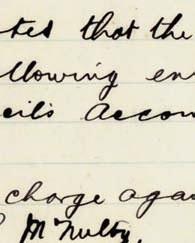 ted that the
llowing en
cils Accou
charge agai
McNulty,